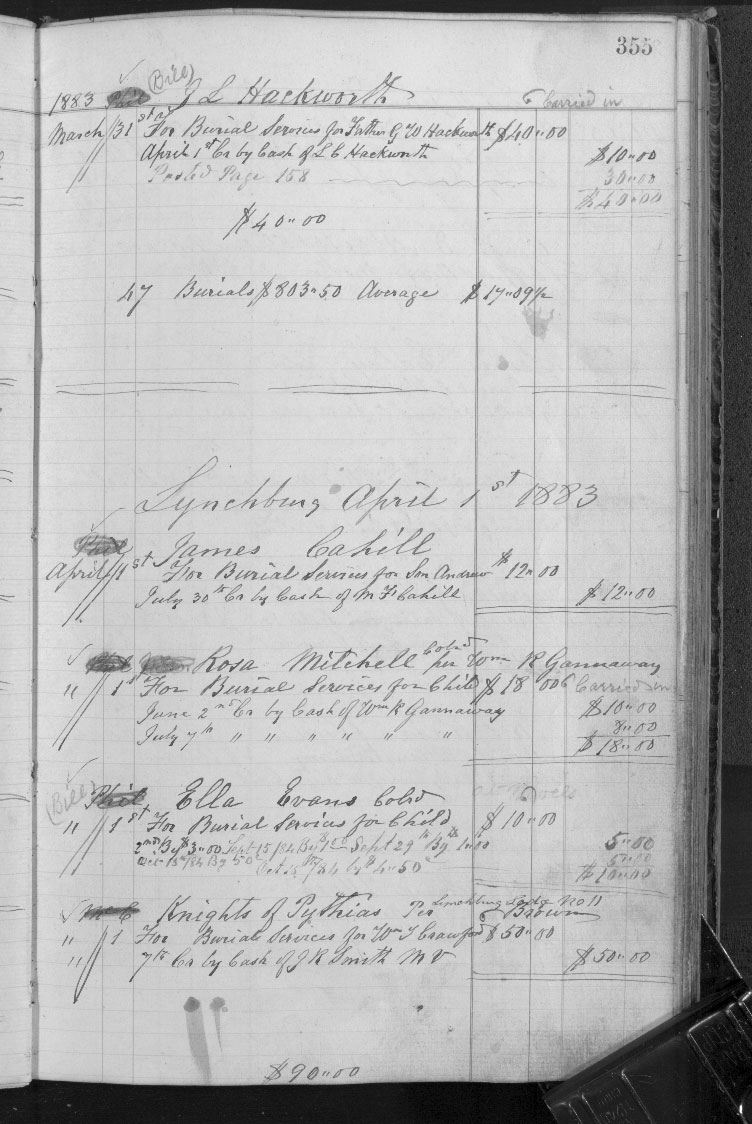 355
(Bill)
1883 Phil J L Hackworth Carried in
March 31st For Burial Services for Father G W Hackworth $40"00
April 1st Cr by Cash of L C Hackworth $10"00
Posted Page 158 30"00
$40"00
$40"00
47 Burials $803"50 Average $17"09½
Lynchburg April 1st 1883
Phil James Cahill
April 1st For Burial Services for Son Andrew $12"00
July 30th Cr by Cash of M F Cahill $12"00
Rosa Mitchell Cold per Wm R Gannaway
" 1st For Burial Services for Child $18"00 Carried in
June 2nd Cr by Cash of Wm R Gannaway $10"00
July 7th " " " " " " 8"00
$18"00
(Bill)
Phil Ella Evans Cold
" 1st For Burial Services for Child $10"00
2nd By $3"00 Sept 15/84 By $1"00 Sept 29th By $1"00 5"00
Oct 13th/84 By 50c Oct /84 by $4"50c 5"00
$10"00
Mc C Knights of Pythias Per Lynchburg Lodge No 11
Brown
" 1 For Burial Services for Wm J Crawford $50"00
" 7th Cr by Cash of J R Smith M V $50"00
$90"00